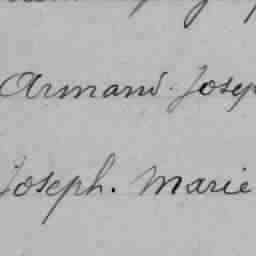 Armand. Josep
Joseph. Marie